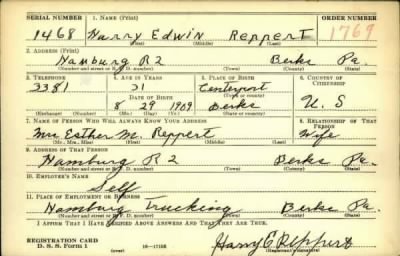 SERIAL NUMBER 1. NAME (Print) ORDER NUMBER
1468 Harry Edwin Reppert 1769
(First) (Middle) (Last)
2. ADDRESS (Print)
Hamburg R2 Berks Pa.
(Number and street or R. F. D. number) (Town) (County) (State)
3. TELEPHONE 4. AGE IN YEARS 5. PLACE OF BIRTH 6. COUNTRY OF CITIZENSHIP
3381 31 Centerport
DATE OF BIRTH (Town or county)
8 29 1909 Berks U. S
(Mo.) (Day) (Yr.) (State or country)
7. NAME OF PERSON WHO WILL ALWAYS KNOW YOUR ADDRESS 8. RELATIONSHIP OF THAT PERSON
Mrs Esther M. Reppert Wife
(Mr., Mrs., Miss) (First) (Middle) (Last)
9. ADDRESS OF THAT PERSON
Hamburg R2 Berks Pa.
(Number and street or R. F. D. number) (Town) (County) (State)
10. EMPLOYER'S NAME
Self
11. PLACE OF EMPLOYMENT OR BUSINESS
Hamburg Trucking Berks Pa.
(Number and street or R. F. D. number) (Town) (County) (State)
I AFFIRM THAT I HAVE VERIFIED ABOVE ANSWERS AND THAT THEY ARE TRUE.
REGISTRATION CARD
D. S. S. Form 1 (over) Harry E Reppert